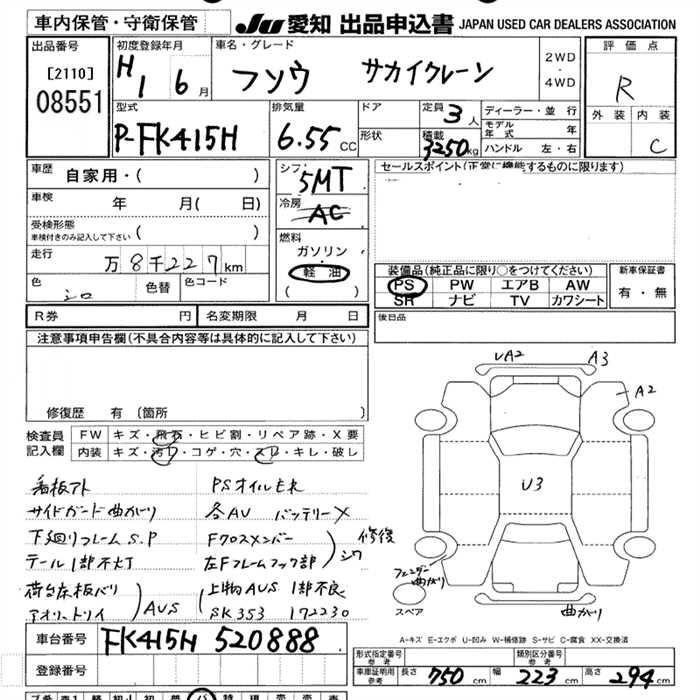 車内保管・守衛保管
JU 愛知 出品申込書 JAPAN USED CAR DEALERS ASSOCIATION
出品番号
[2110]
08551
初度登録年月
H1 6月
車名・グレード
フソウ サカイクレーン
2WD
・
4WD
評価点
R
外装 内装
C
型式
P-FK415H
排気量
6.55 CC
ドア
形状
定員 3人
積載 3250kg
ディーラー・並行
モデル年式 年
ハンドル 左・右
車歴 自家用・( )
車検 年 月( 日)
受検形態
車検付きのみ記入して下さい ( )
走行
万8千227km
色 シロ 色替 色コード
シフト
5MT
冷房
AC
燃料
ガソリン
・
軽油
( )
セールスポイント(正常に機能するものに限ります)
装備品(純正品に限り○をつけてください)
PS PW エアB AW
SR ナビ TV カワシート
新車保証書
有・無
R券 円 名変期限 月 日
後日品
注意事項申告欄(不具合内容等は具体的に記入して下さい)
修復歴 有 〔箇所
検査員 FW キズ・飛石・ヒビ割・リペア跡・X要
記入欄 内装 キズ・汚レ・コゲ・穴・スレ・キレ・破レ
看板アト PSオイルモレ
サイドガード曲がり 各AU バッテリーX
下廻りフレームS.P Fクロスメンバー
テール1部不灯 左Fフレームフック部
シワ 修復
荷台床板バリ 上物AUS 1部不良
アオリ、トリイ SK353 172230
AUS
UA2 A3
A2
U3
フェンダー曲がり
スペア
曲がり
A-キズ E-エクボ U-凹み W-補修跡 S-サビ C-腐食 XX-交換済
車台番号 FK415H 520888
登録番号
形式指定番号 参考 類別区分番号 参考
車庫証明用 参考 長さ 750cm 幅 223cm 高さ 294cm